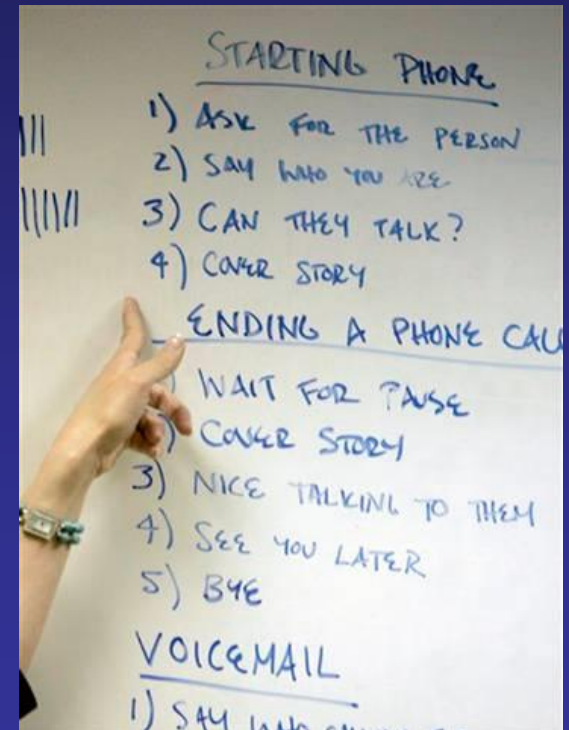 STARTING PHONE
1) ASK FOR THE PERSON
2) SAY WHO YOU ARE
3) CAN THEY TALK?
4) COVER STORY
ENDING A PHONE
) WAIT FOR PAUSE
) COVER STORY
3) NICE TALKING TO THEM
4) SEE YOU LATER
5) BYE
VOICEMAIL
1) SAY WHO